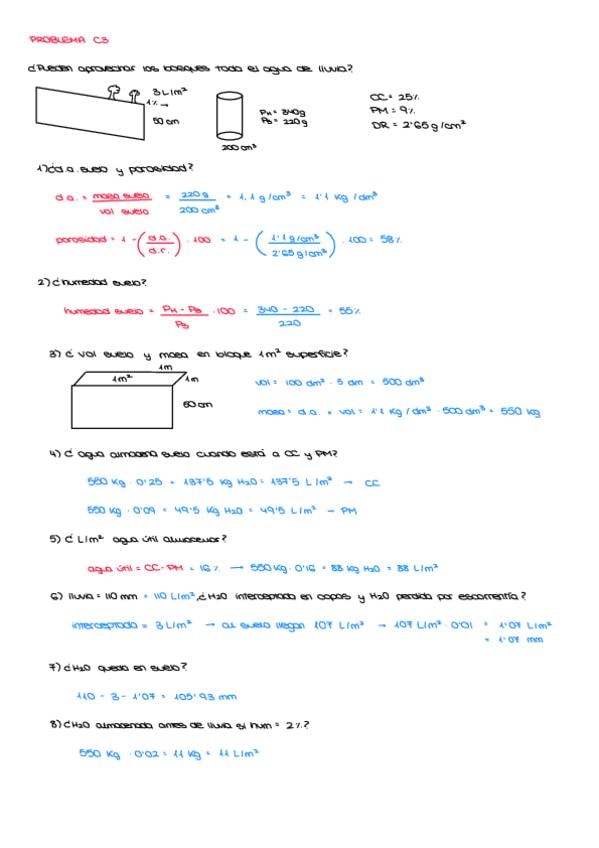 PROBLEMA C3
¿Pueden aprovechar los bosques toda el agua de lluvia?
3 L/m²
1% →
50 cm
PH = 340g
PS = 220g
200 cm³
CC = 25%
PM = 9%
DR = 2'65 g/cm³
1) ¿d.a. suelo y porosidad?
d.a. = masa suelo / vol suelo = 220 g / 200 cm³ = 1.1 g/cm³ = 1'1 Kg/dm³
porosidad = 1 - (d.a. / d.r.) · 100 = 1 - (1'1 g/cm³ / 2'65 g/cm³) · 100 = 58%
2) ¿humedad suelo?
humedad suelo = PH - PS / PS · 100 = 340 - 220 / 220 = 55%
3) ¿ vol suelo y masa en bloque 1m² superficie?
1m
1m²
1m
50 cm
vol = 100 dm² · 5 dm = 500 dm³
masa = d.a. · vol = 1'1 Kg/dm³ · 500 dm³ = 550 Kg
4) ¿ agua almacena suelo cuando está a CC y PM?
550 Kg · 0'25 = 137'5 Kg H2O = 137'5 L/m² → CC
550 Kg · 0'09 = 49'5 Kg H2O = 49'5 L/m² → PM
5) ¿ L/m² agua útil almacenar?
agua útil = CC - PM = 16% → 550 Kg · 0'16 = 88 Kg H2O = 88 L/m²
6) lluvia = 110 mm = 110 L/m², ¿H2O interceptada en copas y H2O perdida por escorrentía?
interceptada = 3 L/m² → al suelo llegan 107 L/m² → 107 L/m² · 0'01 = 1'07 L/m²
= 1'07 mm
7) ¿H2O queda en suelo?
110 - 3 - 1'07 = 105'93 mm
8) ¿H2O almacenada antes de lluvia si hum = 2%?
550 Kg · 0'02 = 11 Kg = 11 L/m²